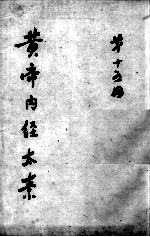 第十五册
黄帝内经太素